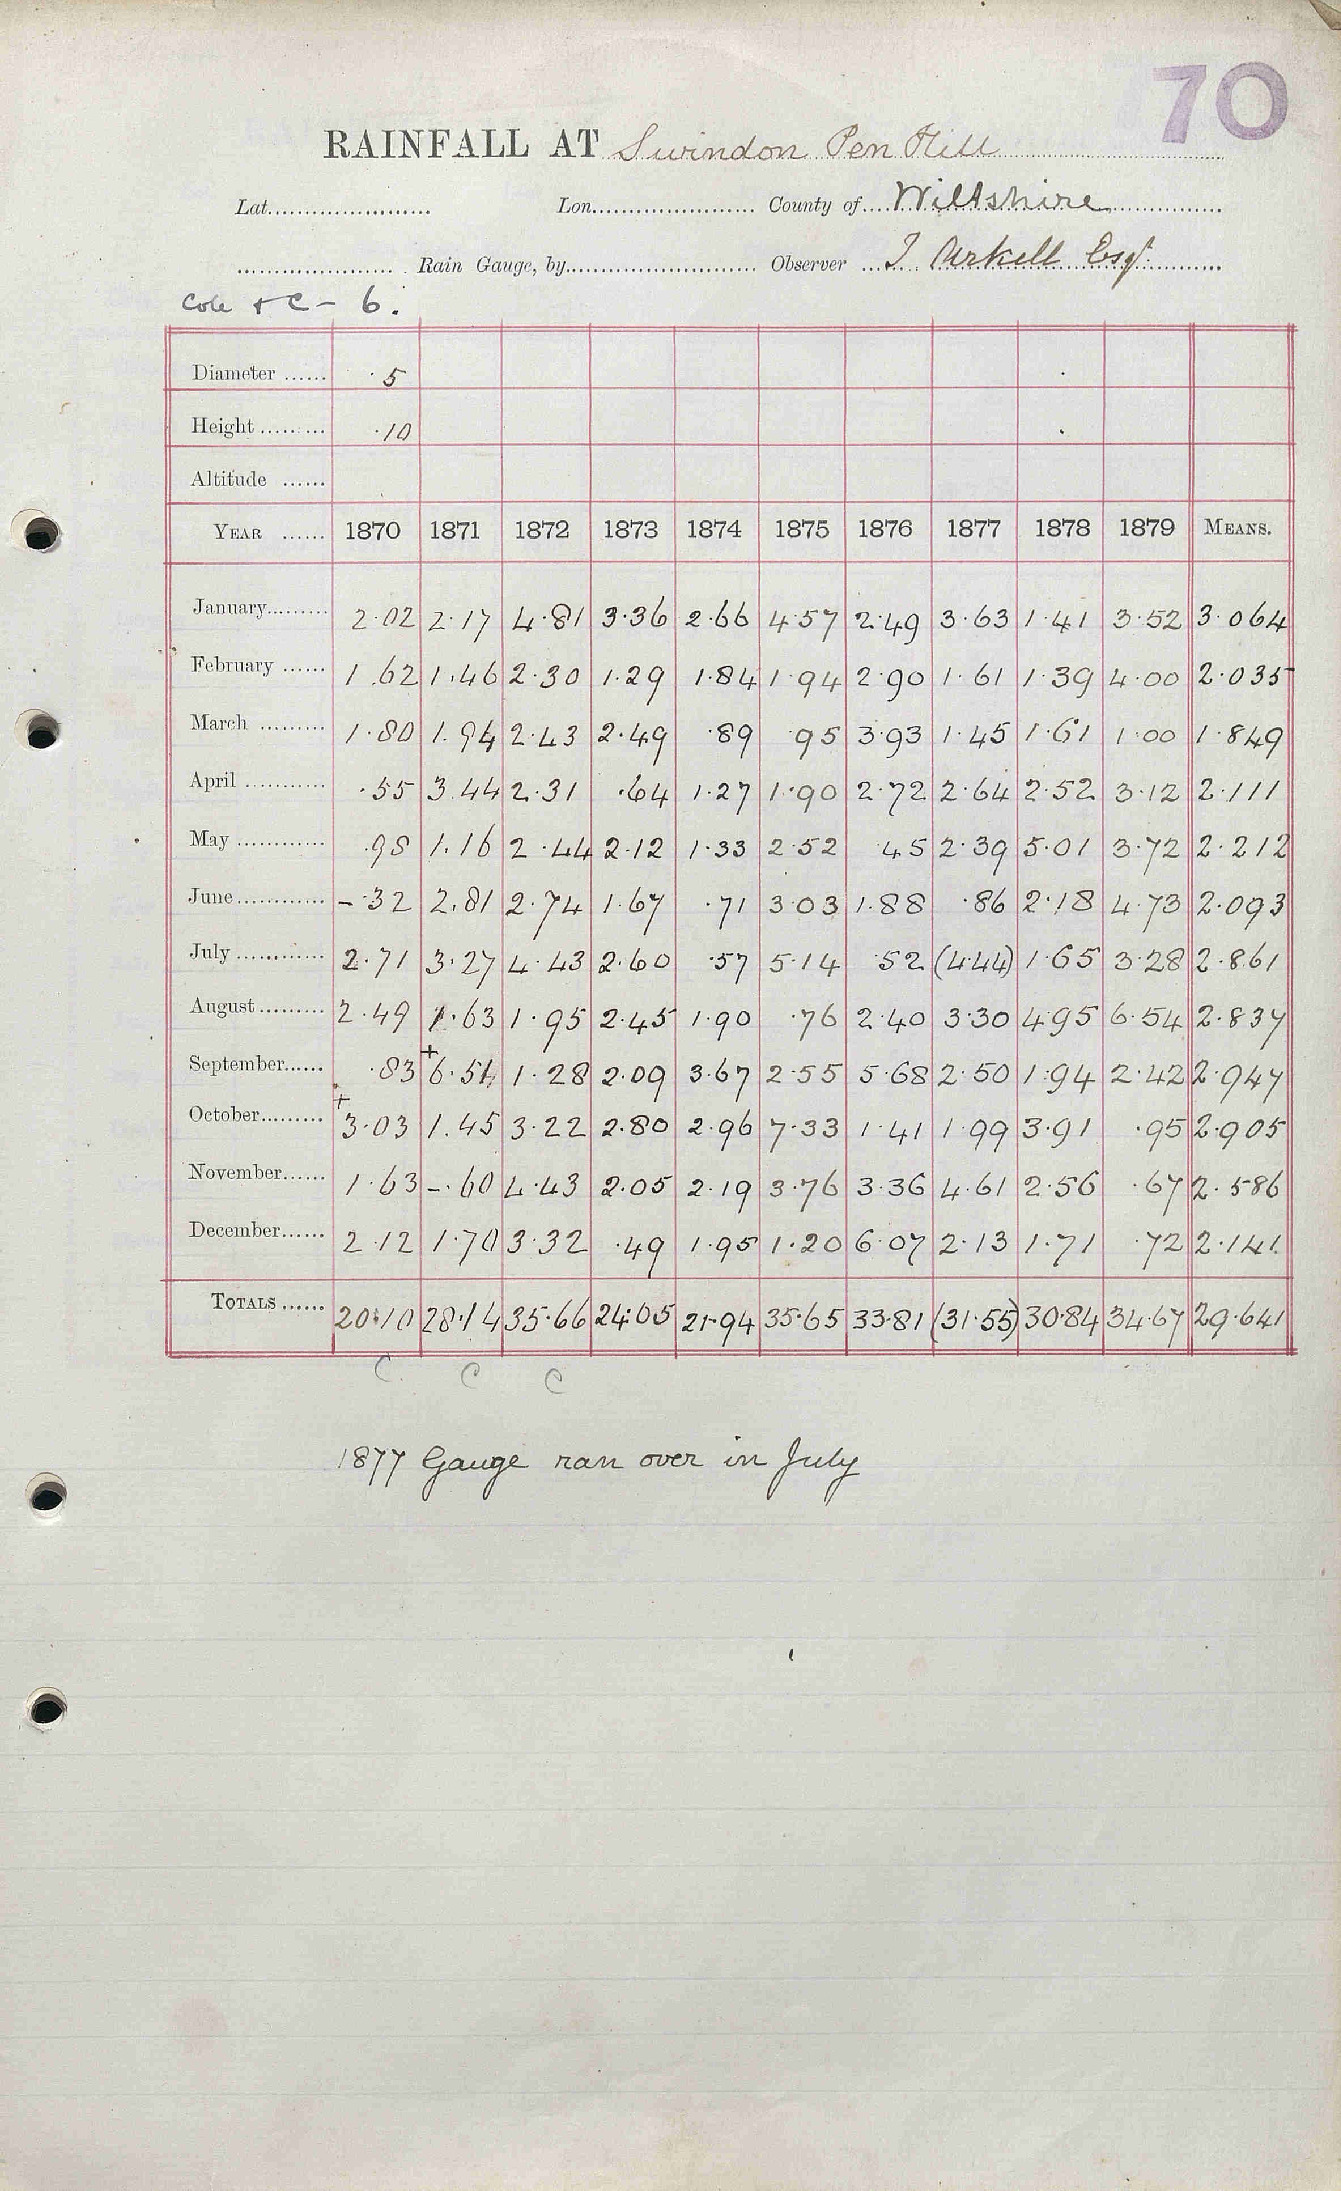 70
RAINFALL AT Swindon Pen Hill
Lat...................... Lon...................... County of....Wiltshire
...................... Rain Gauge, by.......................... Observer ...J Arkell Esqr.
Cole & C - 6.
Diameter ...... ·5
Height ......... ·10
Altitude ......
YEAR ...... 1870 1871 1872 1873 1874 1875 1876 1877 1878 1879 MEANS.
January......... 2·02 2·17 4·81 3·36 2·66 4·57 2·49 3·63 1·41 3·52 3·064
February ...... 1·62 1·46 2·30 1·29 1·84 1·94 2·90 1·61 1·39 4·00 2·035
March ......... 1·80 1·94 2·43 2·49 ·89 ·95 3·93 1·45 1·61 1·00 1·849
April ............ ·55 3·44 2·31 ·64 1·27 1·90 2·72 2·64 2·52 3·12 2·111
May ............ ·98 1·16 2·44 2·12 1·33 2·52 45 2·39 5·01 3·72 2·212
June ............ -·32 2·81 2·74 1·67 ·71 3·03 1·88 ·86 2·18 4·73 2·093
July ............ 2·71 3·27 4·43 2·60 ·57 5·14 ·52 (4·44) 1·65 3·28 2·861
August ......... 2·49 1·63 1·95 2·45 1·90 ·76 2·40 3·30 4·95 6·54 2·837
September...... ·83 +6·51 1·28 2·09 3·67 2·55 5·68 2·50 1·94 2·42 2·947
October......... +3·03 1·45 3·22 2·80 2·96 7·33 1·41 1·99 3·91 ·95 2·905
November...... 1·63 -·60 4·43 2·05 2·19 3·76 3·36 4·61 2·56 ·67 2·586
December...... 2·12 1·70 3·32 ·49 1·95 1·20 6·07 2·13 1·71 ·72 2·141
TOTALS ...... 20·10 28·14 35·66 24·05 21·94 35·65 33·81 (31·55) 30·84 34·67 29·641
C C C
1877 Gauge ran over in July